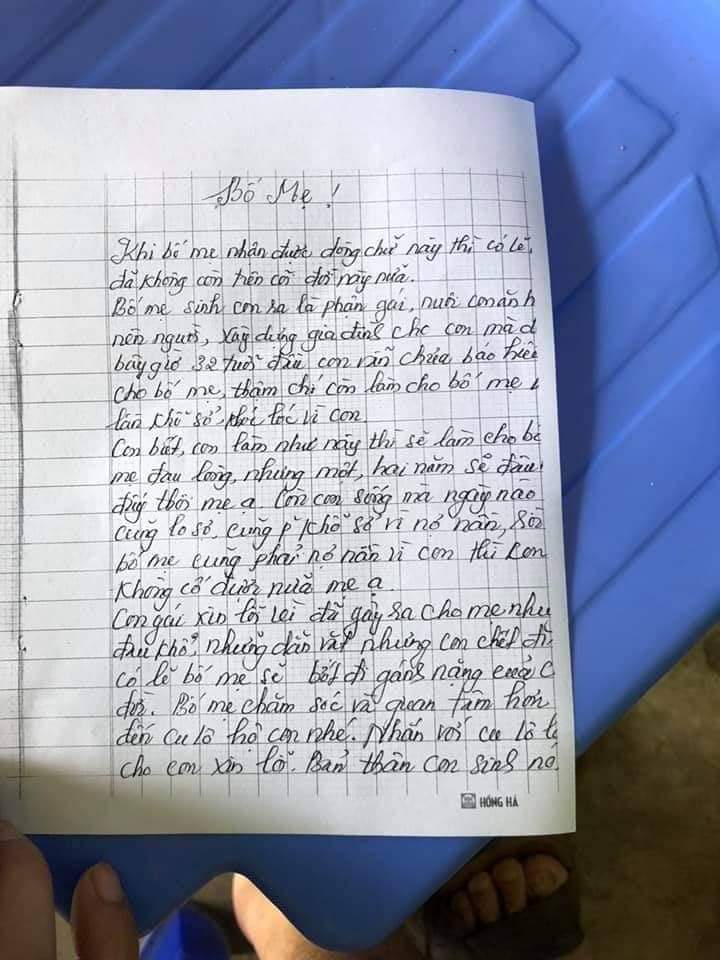 Bố Mẹ!
Khi bố mẹ nhận được dòng chữ này thì có lẽ
đã không còn trên cõi đời này nữa.
Bố mẹ sinh con ra là phận gái, nuôi con ăn h
nên người, xây dựng gia đình cho con mà
bây giờ 32 tuổi đầu con vẫn chưa báo hiếu
cho bố mẹ, thậm chí còn làm cho bố mẹ
khổ sở, vì con
Con biết, con làm như này thì sẽ làm cho bố
mẹ đau lòng, nhưng một, hai năm sẽ đâu
đấy thôi mẹ ạ. Còn con sống mà ngày nào
cũng lo sợ, cũng p' khổ sở vì nợ nần,
bố mẹ cũng phải nợ nần vì con thì con
không cố được nữa mẹ ạ.
Con gái xin lỗi vì đã gây ra cho mẹ nhiều
đau khổ, những dằn vặt nhưng con chết đi
có lẽ bố mẹ sẽ bớt đi gánh nặng
đời. Bố mẹ chăm sóc và quan tâm hơn
đến cu lô hộ con nhé. Nhắn với cu lô
cho con xin lỗi. Bản thân con sinh nó
HỒNG HÀ